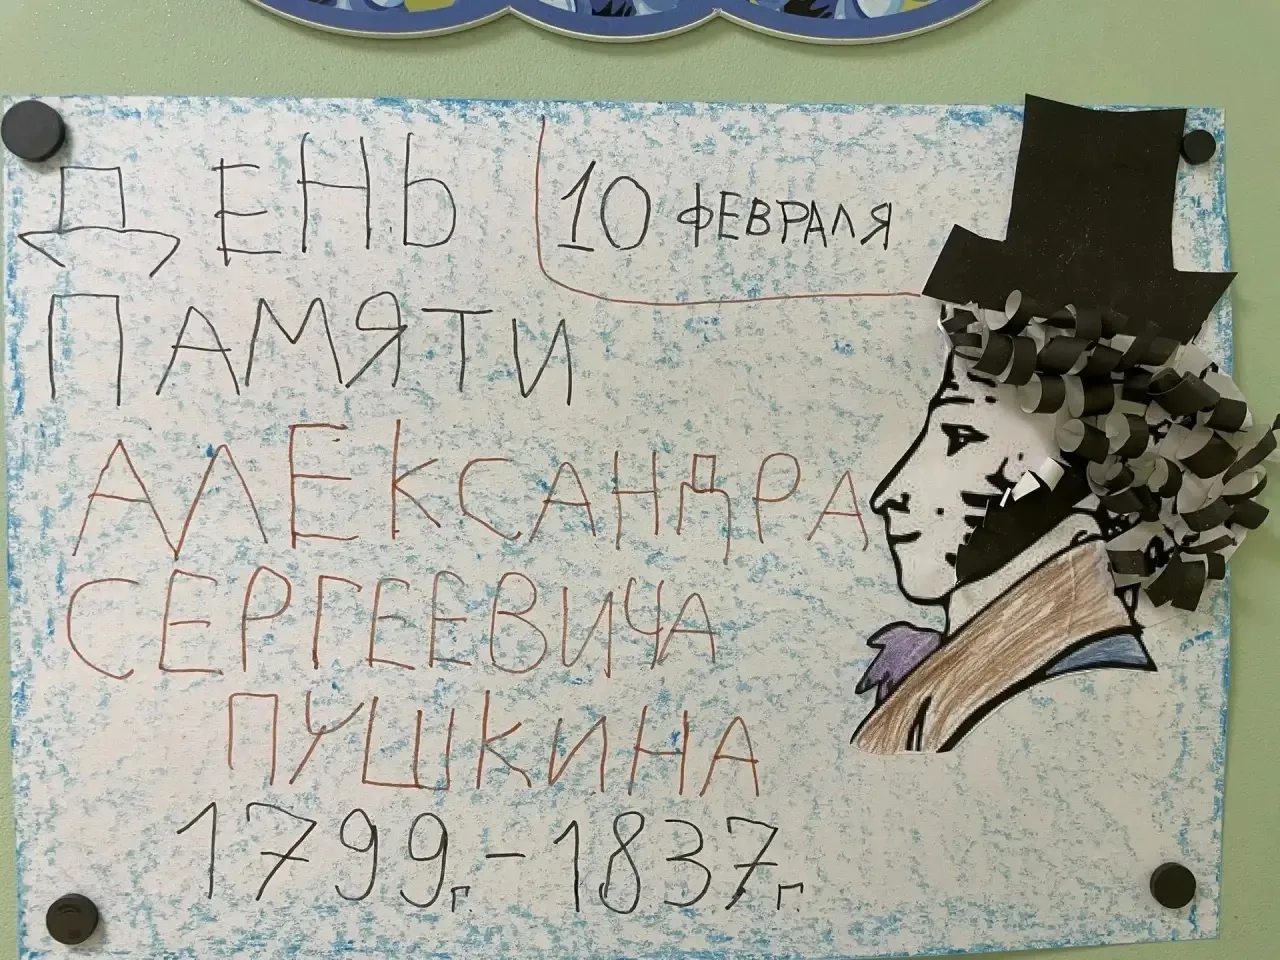 ДЕНЬ
10 ФЕВРАЛЯ
ПАМЯТИ
АЛЕКСАНДРА
СЕРГЕЕВИЧА
ПУШКИНА
1799г.-1837г.